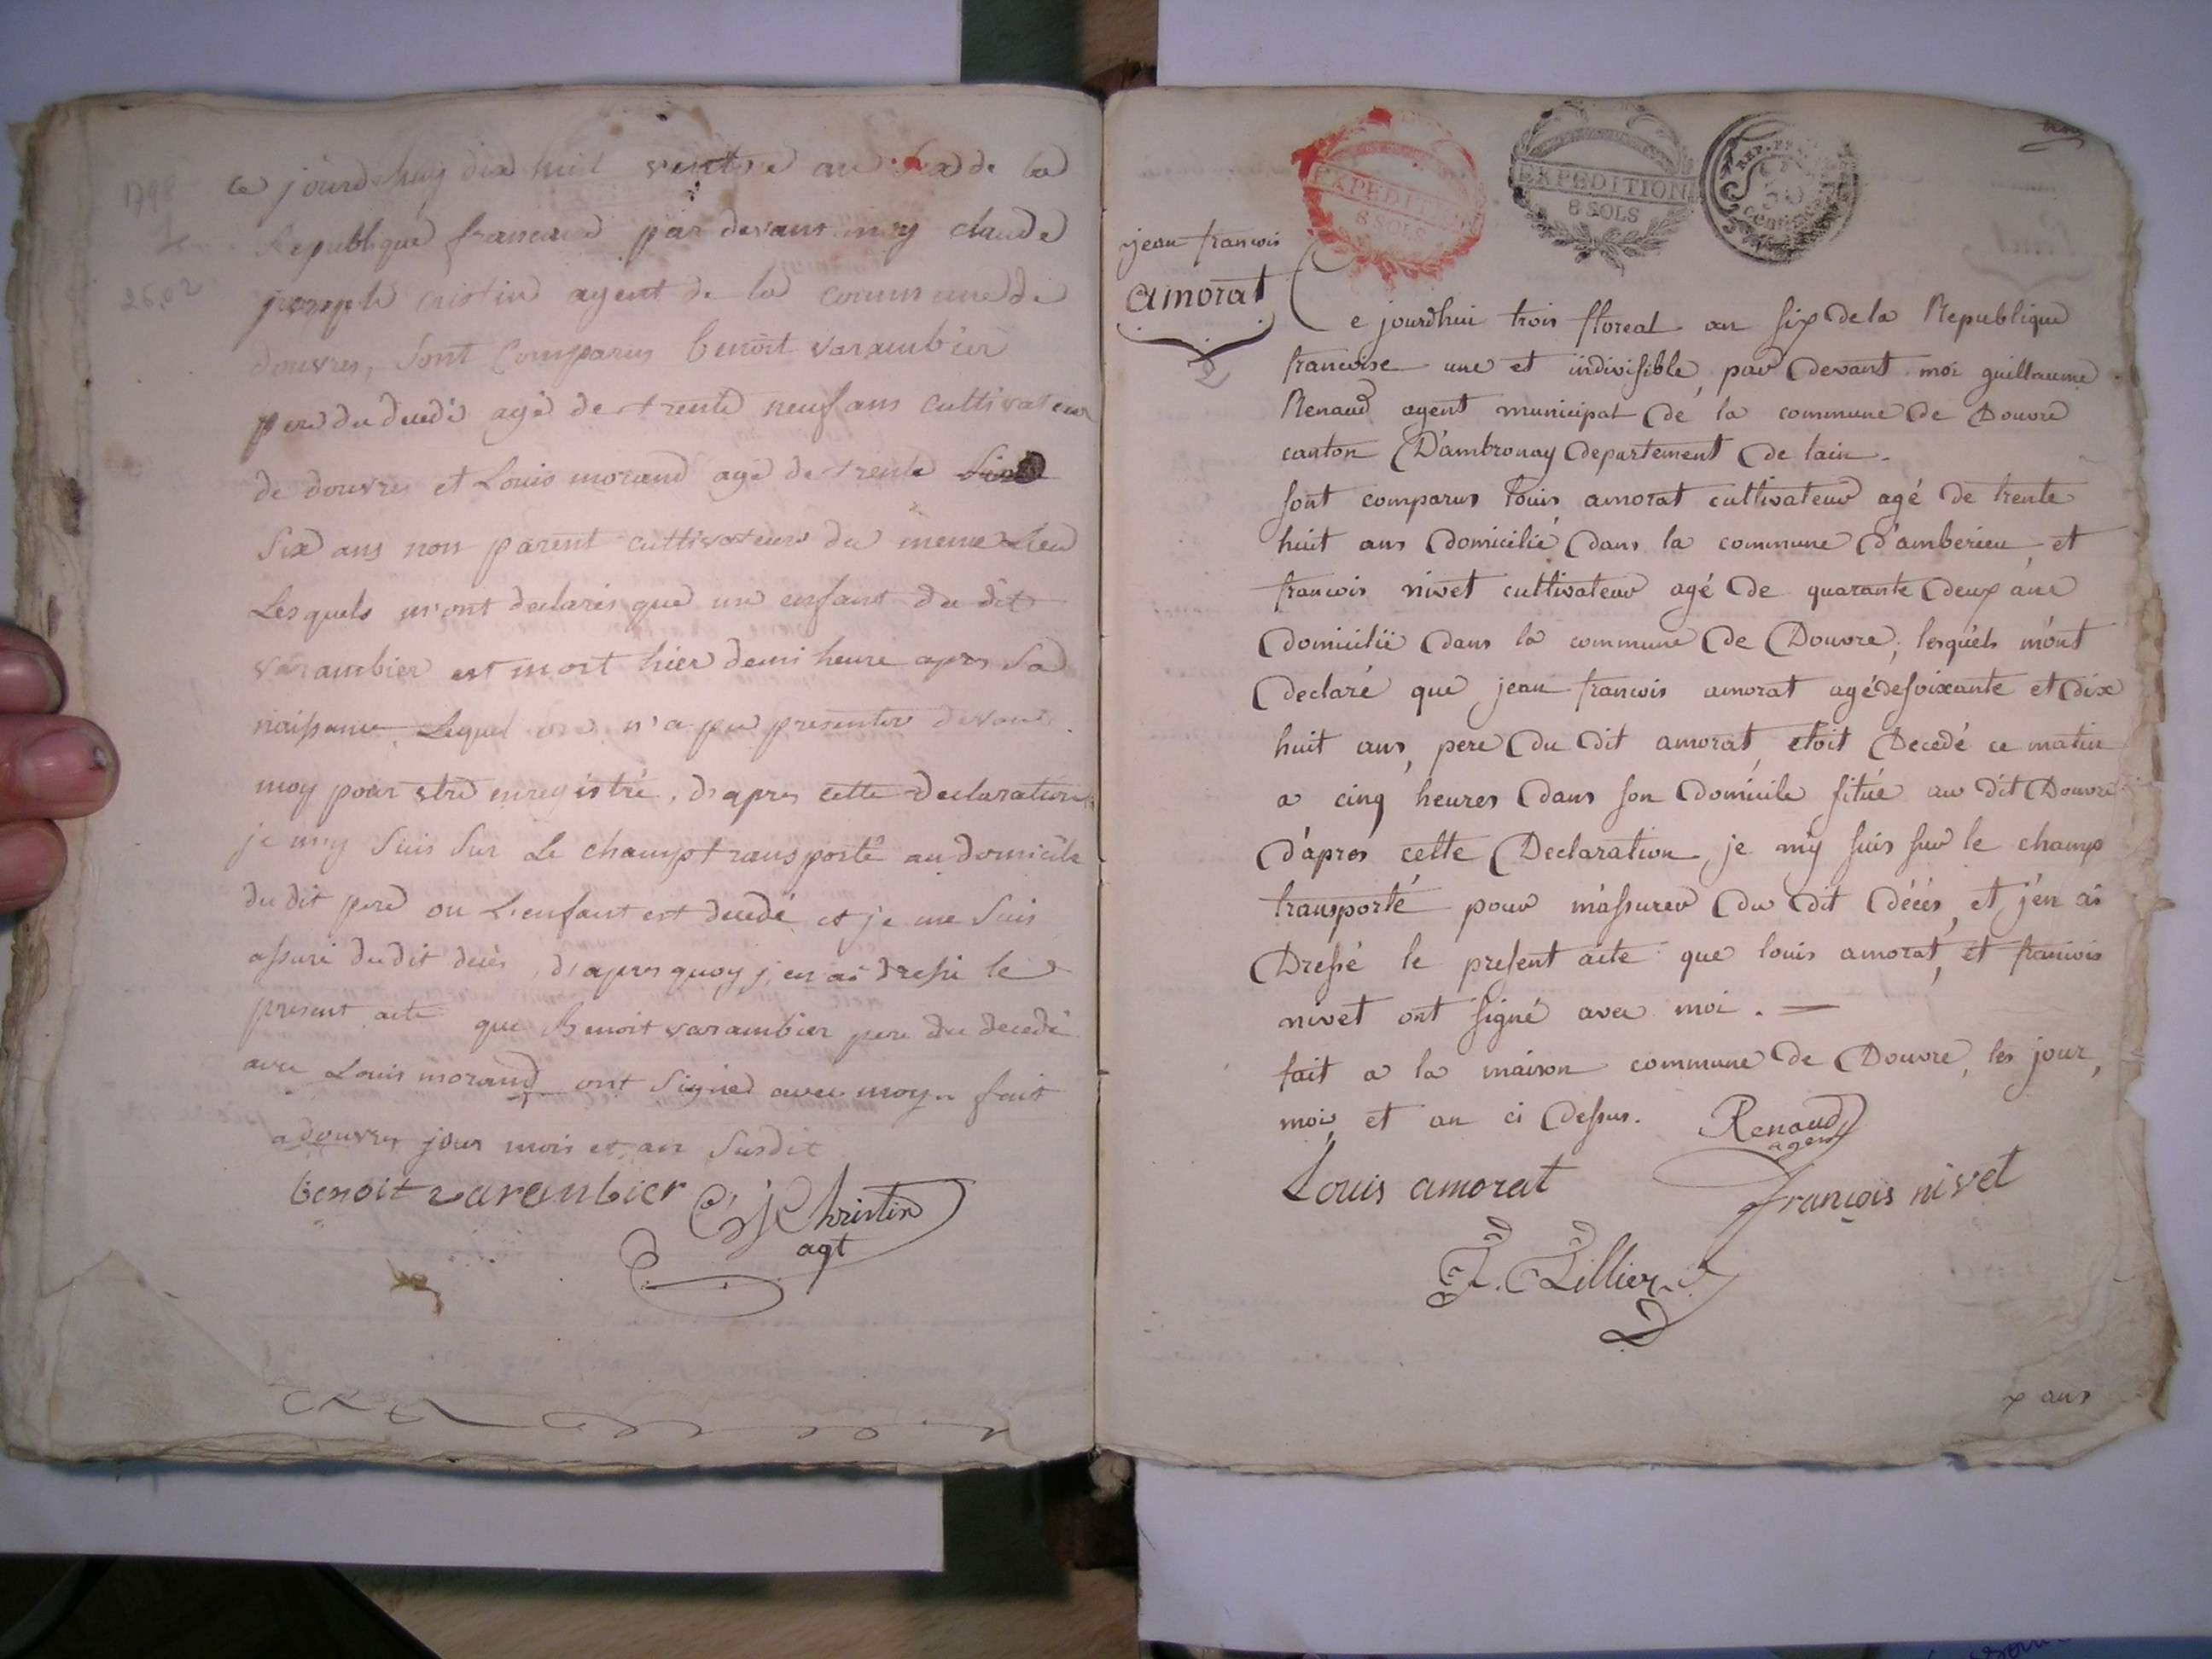 1798
ce jourdhuy dix huit ventose an six de la
Republique francaise par devant moy claude
joseph cristin agent de la commune de
douvres, sont comparus benoit varambier
pere du decedé agé de trente neuf ans cultivateur
de douvres et Louis morand agé de trente
six ans non parent cultivateurs du meme Lieu
Lesquels m'ont declarés que un enfant du dit
varambier est mort hier demi heure apres sa
naissance Lequel on n'a pu presenter devant
moy pour etre enregistré, d'apres cette declaration
je m'y suis sur Le champ transporté au domicile
du dit pere ou L'enfant est decedé et je me suis
assuré du dit decès, d'apres quoy j'en ai dressé le
present acte que Benoit varambier pere du decedé
avec Louis morand ont signé avec moy. fait
a douvres jour mois et an susdit
benoit varambier C j Christin
agt
EXPEDITION
8 SOLS
EXPEDITION
8 SOLS
REP. FRA
jean francois
amorat
Ce jourdhui trois floreal an six de la Republique
francoise une et indivisible, par devant moi guillaume
Renaud agent municipal de la commune de Douvre
canton D'ambronay departement de lain.
sont comparus louis amorat cultivateur agé de trente
huit ans domicilié dans la commune d'amberieu et
francois nivet cultivateur agé de quarante deux ans
domicilié dans la commune de Douvre; lesquels m'ont
declaré que jean francois amorat agé de soixante et dix
huit ans, pere du dit amorat, etoit Decedé ce matin
a cinq heures dans son domicile situé au dit Douvre
d'apres cette Declaration je m'y suis sur le champ
transporté pour m'assurer du dit décés, et j'en ai
Dressé le present acte que louis amorat, et francois
nivet ont signé avec moi.
fait a la maison commune de Douvre, les jour,
moi, et an ci dessus. Renaud
agent
Louis amorat françois nivet
ans